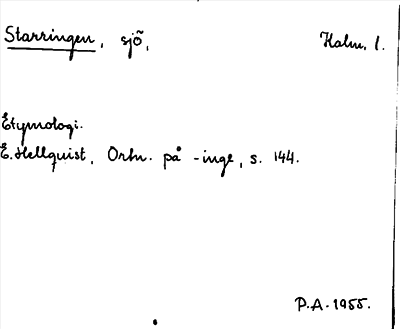 Starringen, sjö, Halm. l.
Etymologi.
E. Hellquist, Ortn. på -inge, s. 144.
P.A. 1955.